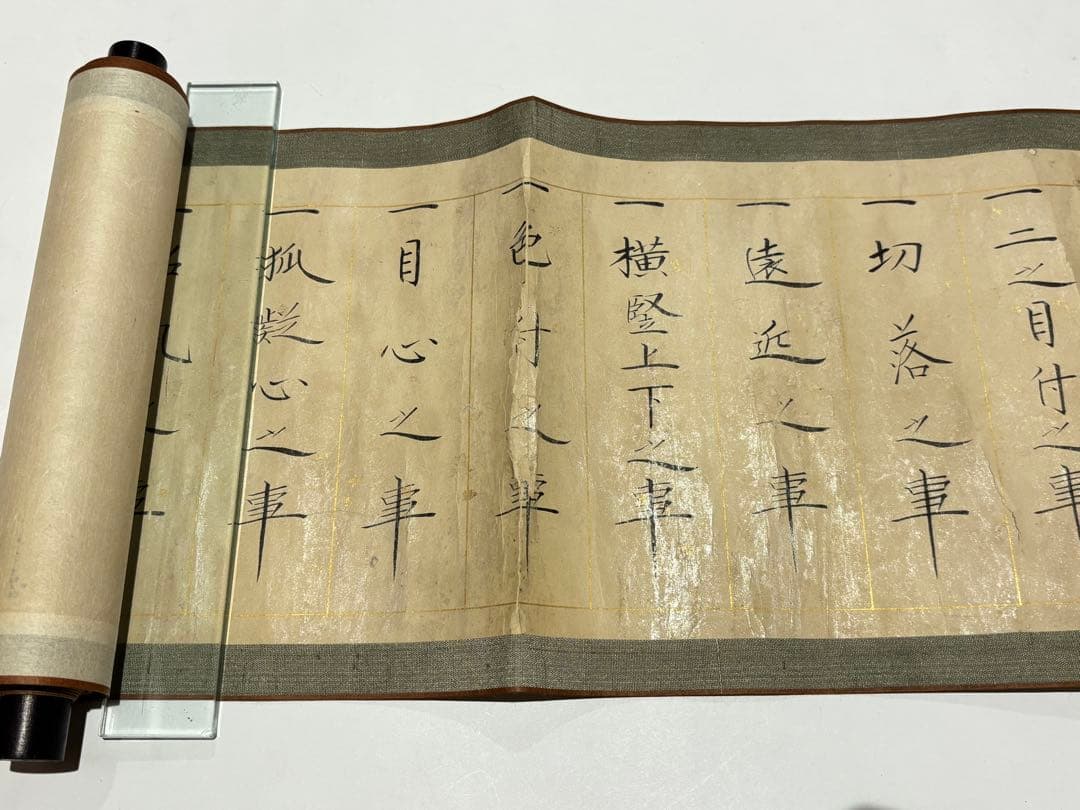 一二之目付之事
一切落之事
一遠近之事
一横竪上下之事
一色付之事
一目心之事
一狐疑心之事
一風之事